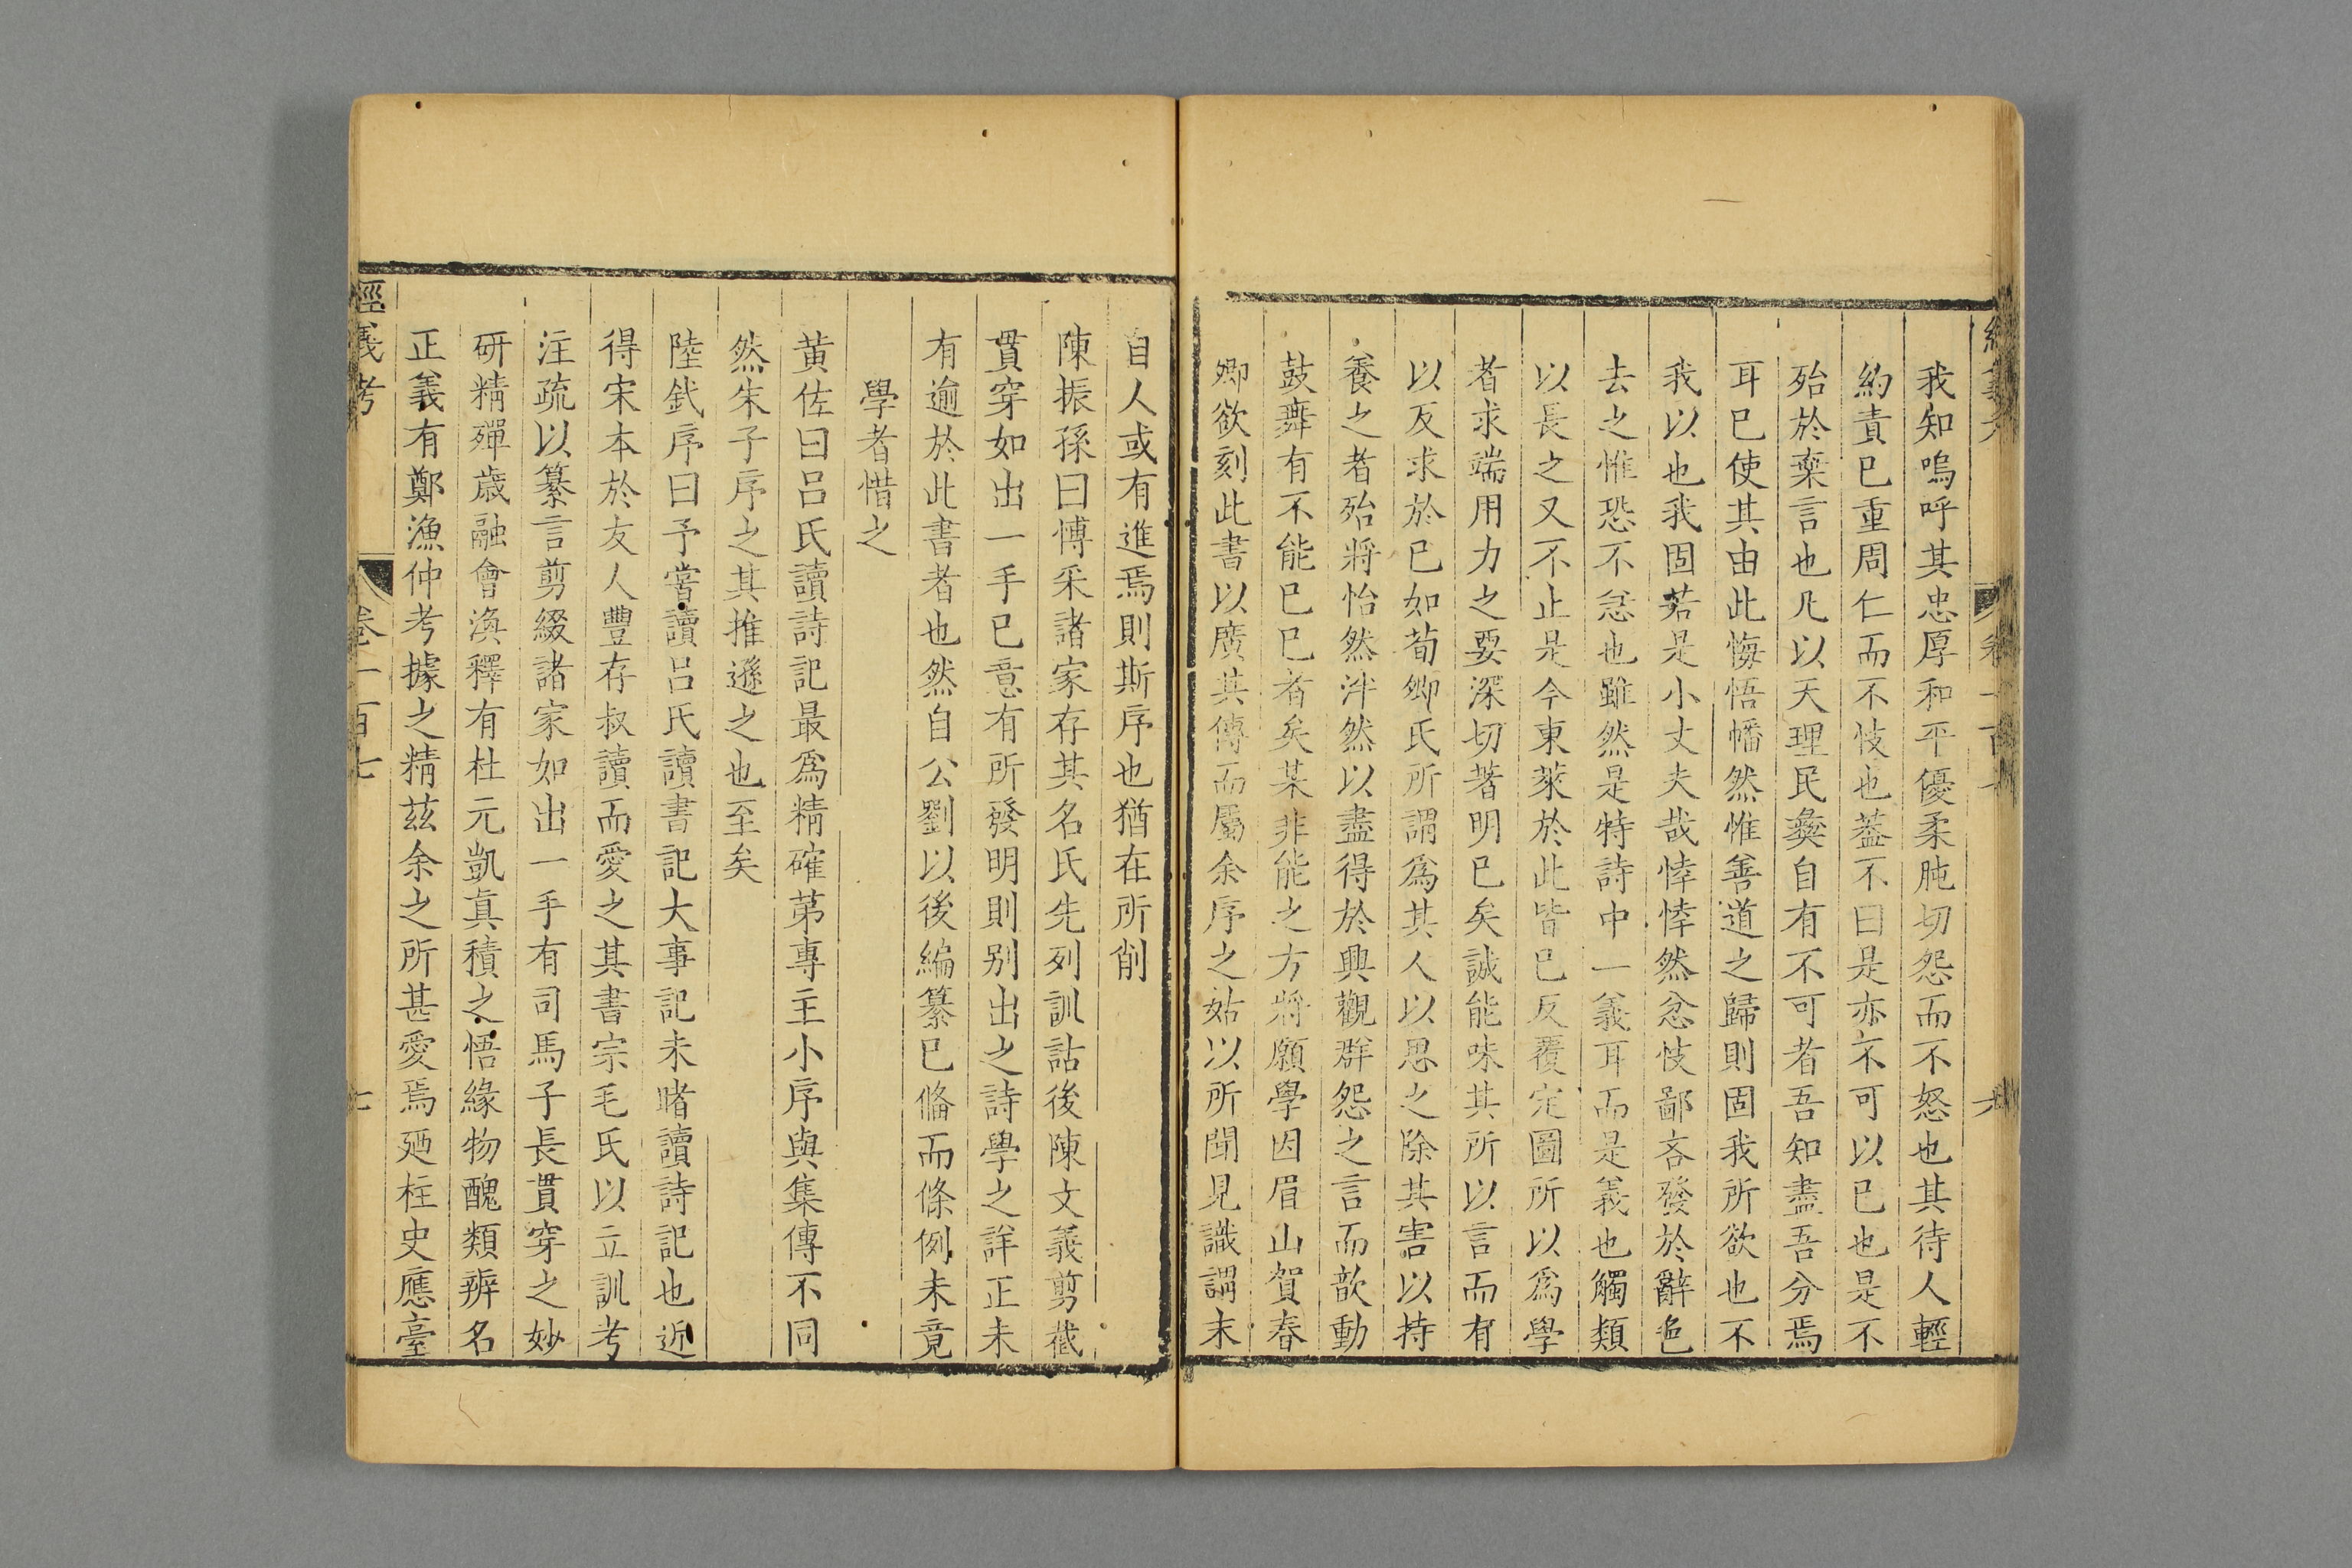 我知嗚呼其忠厚和平優柔肫切怨而不怒也其待人輕
約責已重周仁而不忮也葢不曰是亦不可以已也是不
殆於棄言也凡以天理民彜自有不可者吾知盡吾分焉
耳已使其由此悔悟幡然惟善道之歸則固我所欲也不
我以也我固若是小丈夫哉悻悻然忿忮鄙吝發於辭色
去之惟恐不𢗅也雖然是特詩中一義耳而是義也觸類
以長之又不止是今東萊於此皆已反覆定圖所以爲學
者求端用力之要深切著明已矣誠能味其所以言而有
以反求於已如荀卿氏所謂爲其人以思之除其害以持
養之者殆將怡然泮然以盡得於興觀群怨之言而歆動
鼓舞有不能已已者矣某非能之方將願學因眉山賀春
卿欲刻此書以廣其傳而屬余序之姑以所聞見識謂末
自人或有進焉則斯序也猶在所削
陳振孫曰博采諸家存其名氏先列訓詁後陳文義剪截
貫穿如出一手已意有所發明則别出之詩學之詳正未
有逾於此書者也然自公劉以後編纂已僃而條例未竟
學者惜之
黄佐曰吕氏讀詩記最爲精確苐專主小序與集傳不同
然朱子序之其推遜之也至矣
陸釴序曰予嘗讀吕氏讀書記大事記未睹讀詩記也近
得宋本於友人豐存叔讀而愛之其書宗毛氏以立訓考
注疏以纂言剪綴諸家如出一手有司馬子長貫穿之妙
研精殫歲融會渙釋有杜元凱眞積之悟緣物醜類辨名
正義有鄭漁仲考據之精兹余之所甚愛焉廼柱史應臺
經義考
卷一百七
七